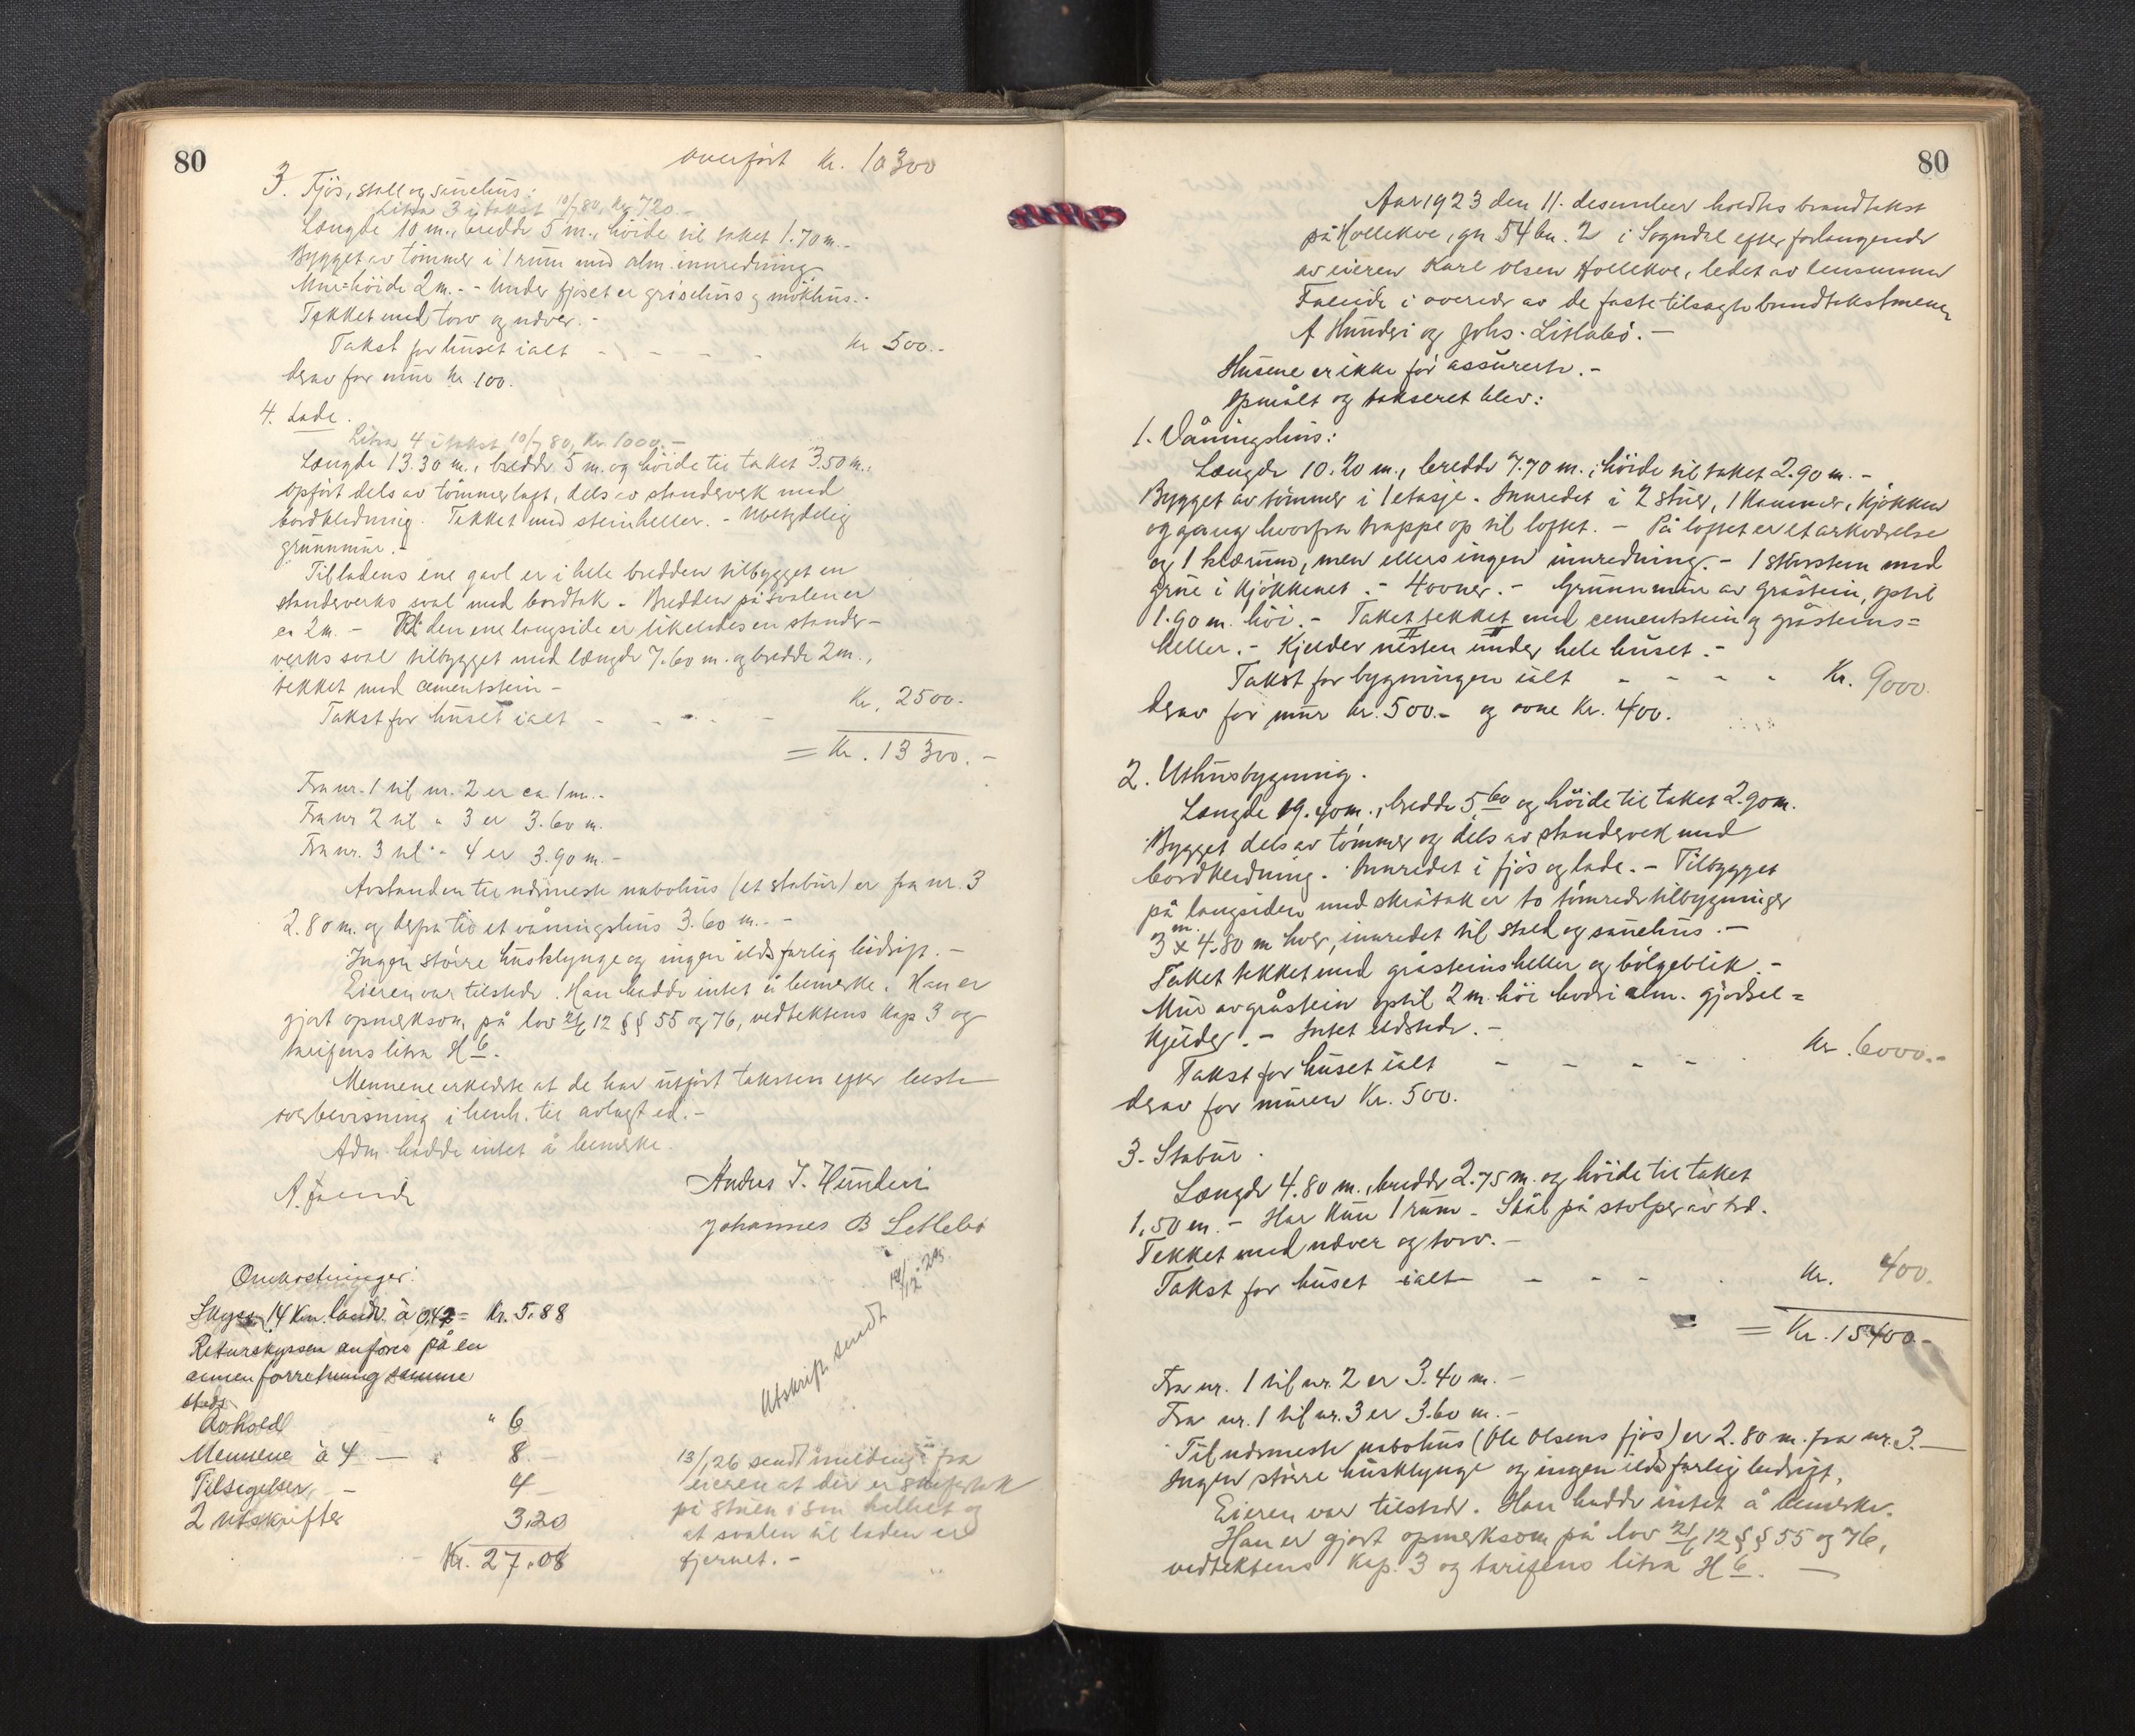 80
overført Kr. 10300
3. Fjös, stall og sauehus:
Litra 3 i takst 10/7 80, Kr. 720.-
Længde 10 m., bredde 5 m., höide til taket 1.70 m.-
Bygget av tömmer i 1 rum med alm. innredning.
Mur-höide 2 m. - Under fjöset er grisehus og mökhus.-
Tekket med torv og næver.-
Takst for huset ialt - - - - - Kr. 500.-
Derav for mur Kr. 100.
4. Lade.
Litra 4 i takst 10/7 80, Kr. 1000.-
Længde 13.30 m., bredde 5 m. og höide til taket 3.50 m.,
opfört dels av tömmerlagt, dels av standerverk med
bordklædning. Tekket med steinheller. - Ubetydelig
grunnmur.-
Til ladens ene gavl er i hele bredden tilbygget en
standerverks sval med bordtak. Bredden på svalen er
ca 2 m. - Til den ene langside er likeledes en stander-
verks sval tilbygget med længde 7.60 m. og bredde 2 m.,
tekket med cementstein -
Takst for huset ialt - - - - Kr. 2500.-
= Kr. 13300.-
Fra nr. 1 til nr. 2 er ca. 1 m.-
Fra nr 2 til " 3 er 3.60 m.
Fra nr. 3 til - 4 er 3.90 m.-
Avstanden til nærmeste nabohus (et stabur) er fra nr. 3
2.80 m. og derfra til et våningshus 3.60 m.-
Ingen större husklynge og ingen ildsfarlig bedrift.-
Eieren var tilstede. Han hadde intet å bemerke. Han er
gjort opmerksom på lov 21/6 12 §§ 55 og 76, vedtektens kap 3 og
tarifens litra H 6.
Mennene erklærte at de har utfört taksten efter beste
overbevisning i henh. til avlagt ed.-
Adm. hadde intet å bemerke.
A. Faleide
Andus I. Hundere
Johannes B Litlebö
Omkostninger:
Skyss 14 km. landv. à 0,42 = Kr. 5.88
Returskyssen anföres på en
annen forretning samme
sted.
Avhold " 6
Mennene à 4 — " 8.-
Tilsigelser, - 4 -
2 utskrifter 3.20
Kr. 27.08
Utskrift sendt 19/12 23
13/1 26 sendt melding fra
eieren at der er skifertak
på stuen i sin helhet og
at svalen til laden er
fjernet.-
80
Aar 1923 den 11. desember holdtes brandtakst
på Hollekve, gn 54 bn. 2 i Sogndal efter forlangende
av eieren Karl Olsen Hollekve, ledet av lensmann
Faleide i overvær av de faste tilsagte brandtakstmenn
A Hundere og Johs. Litlabö.-
Husene er ikke för assurert.-
Opmålt og taksert blev:
1. Våningshus:
Længde 10.20 m., bredde 7.70 m., höide til taket 2.90 m.-
Bygget av tömmer i 1 etasje. Innredet i 2 stuer, 1 kammer, kjökken
og gang hvorfra trappe op til loftet. - På loftet er et arkværelse
og 1 klærum, men ellers ingen innredning. - 1 skorstein med
grue i kjökkenet. - 4 ovner. - Grunnmur av gråstein, optil
1.90 m. höi. - Taket tekket med cementstein og gråsteins=
heller. - Kjelder nesten under hele huset.-
Takst for bygningen ialt - - - - Kr. 9000.
Derav for mur Kr. 500.- og ovne Kr. 400.
2. Uthusbygning.
Længde 19.40 m., bredde 5,60 og höide til taket 2.90 m.
Bygget dels av tömmer og dels av standerverk med
bordklædning. Innredet i fjös og lade. - Tilbygget
på langsiden med skråtak er to tömrede tilbygninger
3 m. x 4.80 m hver, innredet til stald og sauehus.-
Taket tekket med gråsteinsheller og bölgeblik.-
Mur av gråstein optil 2 m. höi hvori alm. gjödsel=
kjelder. - Intet ildsted.-
Takst for huset ialt - - - - Kr. 6000.-
Derav for muren Kr. 500.
3. Stabur.
Længde 4.80 m., bredde 2.75 m. og höide til taket
1,50 m. - Har kun 1 rum - Står på stolper av træ.
Tekket med næver og torv.-
Takst for huset ialt - - - - Kr. 400.
= Kr. 15400.-
Fra nr. 1 til nr. 2 er 3.40 m.-
Fra nr. 1 til nr. 3 er 3.60 m.-
Til nærmeste nabohus (Ole Olsens fjös) er 2.80 m. fra nr. 3.-
Ingen större husklynge og ingen ildsfarlig bedrift.
Eieren var tilstede. Han hadde intet å bemerke.
Han er gjort opmerksom på lov 21/6 12 §§ 55 og 76,
vedtektens kap. 3 og tarifens litra H 6. —